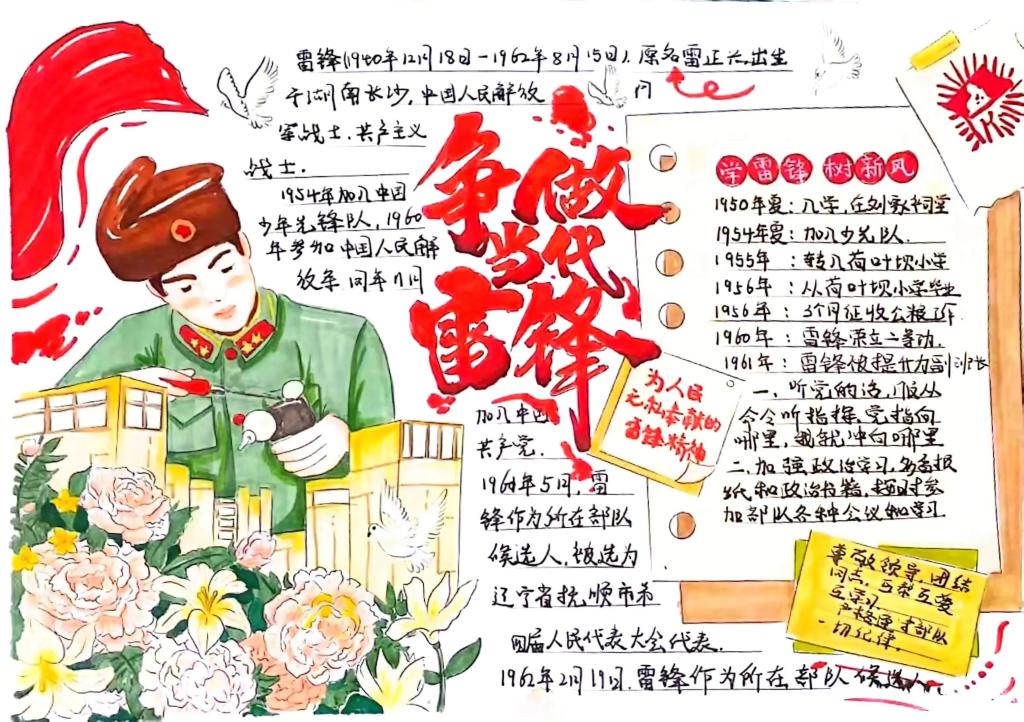 雷锋(1940年12月18日-1962年8月15日),原名雷正兴,出生
于湖南长沙,中国人民解放
军战士,共产主义
战士.
1954年加入中国
少年先锋队,1960
年参加中国人民解
放军 同年11月
加入中国
共产党.
5月,雷
锋作为所在部队
候选人,被选为
辽宁省抚顺市第
四届人民代表大会代表.
1962年2月19日,雷锋作为所在部队候选人,
争做
当代
雷锋
学雷锋 树新风
1950年夏:入学,在刘家祠堂
1954年夏:加入少先队.
1955年 :转入荷叶坝小学
1956年 :从荷叶坝小学毕业
1956年 :3个月征收公粮工作
1960年 :雷锋荣立二等功.
1961年 :雷锋被提升为副班长
一、听党的话,服从
命令听指挥,党指向
哪里,我就冲向哪里
二、加强政治学习,多看报
纸和政治书籍,按时参
加部队各种会议和学习.
为人民
无私奉献的
雷锋精神
尊敬领导,团结
同志,互帮互爱
互学习.
严格遵守部队
一切纪律.